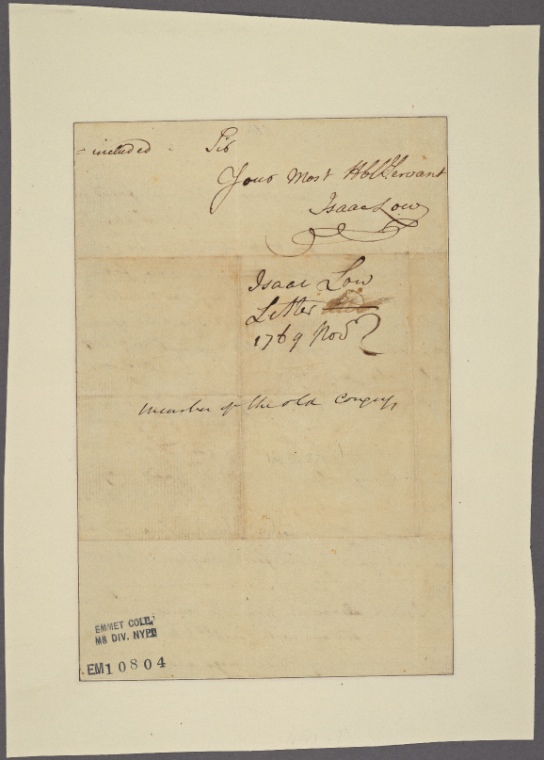 included Sir
Your Most Hble Servant
Isaac Low
Isaac Low
Letter
1769 Nov
Member of the old Congress
EMMET COLL.
MS DIV. NYPL
EM10804